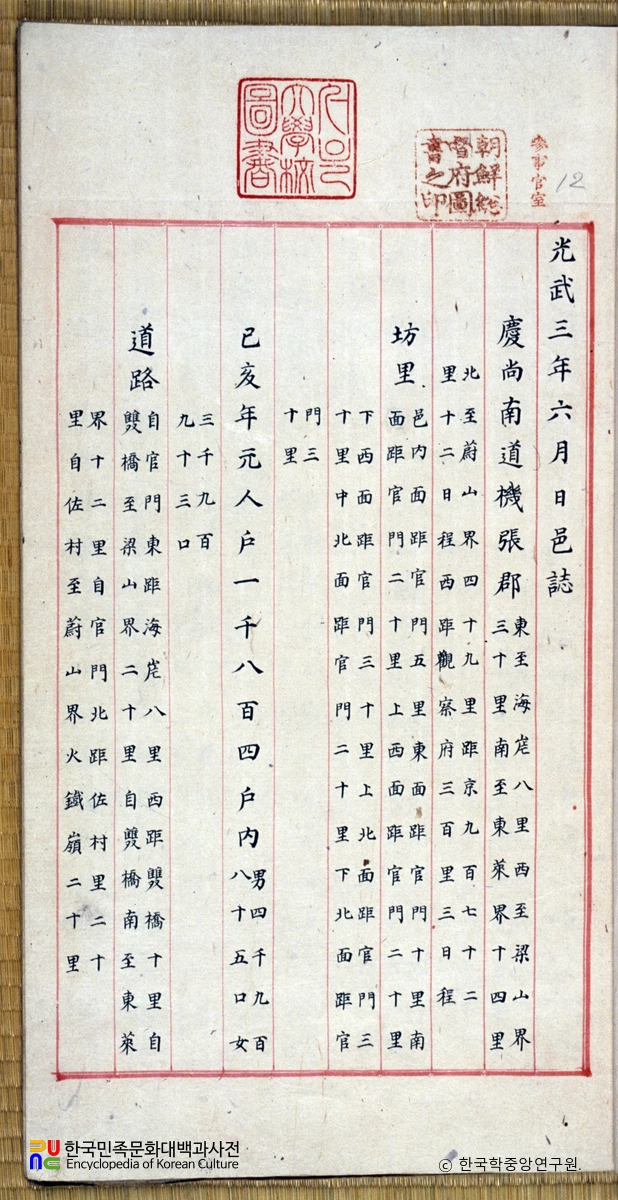 서울
大學校
圖書
朝鮮總
督府圖
書之印
參事官室
12
光武三年六月日邑誌
慶尚南道機張郡
東至海岸八里西至梁山界
三十里南至東萊界十四里
北至蔚山界四十九里距京九百七十二
里十二日程西距觀察府三百里三日程
坊里
邑内面距官門五里東面距官門十里南
面距官門二十里上西面距官門二十里
下西面距官門三十里上北面距官門三
十里中北面距官門二十里下北面距官
門三
十里
己亥年元人戶一千八百四戶内
男四千九百
八十五口女
三千九百
九十三口
道路
自官門東距海岸八里西距雙橋十里自
雙橋至梁山界二十里自雙橋南至東萊
界十二里自官門北距佐村里二十
里自佐村至蔚山界火鐵嶺二十里
한국민족문화대백과사전
Encyclopedia of Korean Culture
© 한국학중앙연구원.